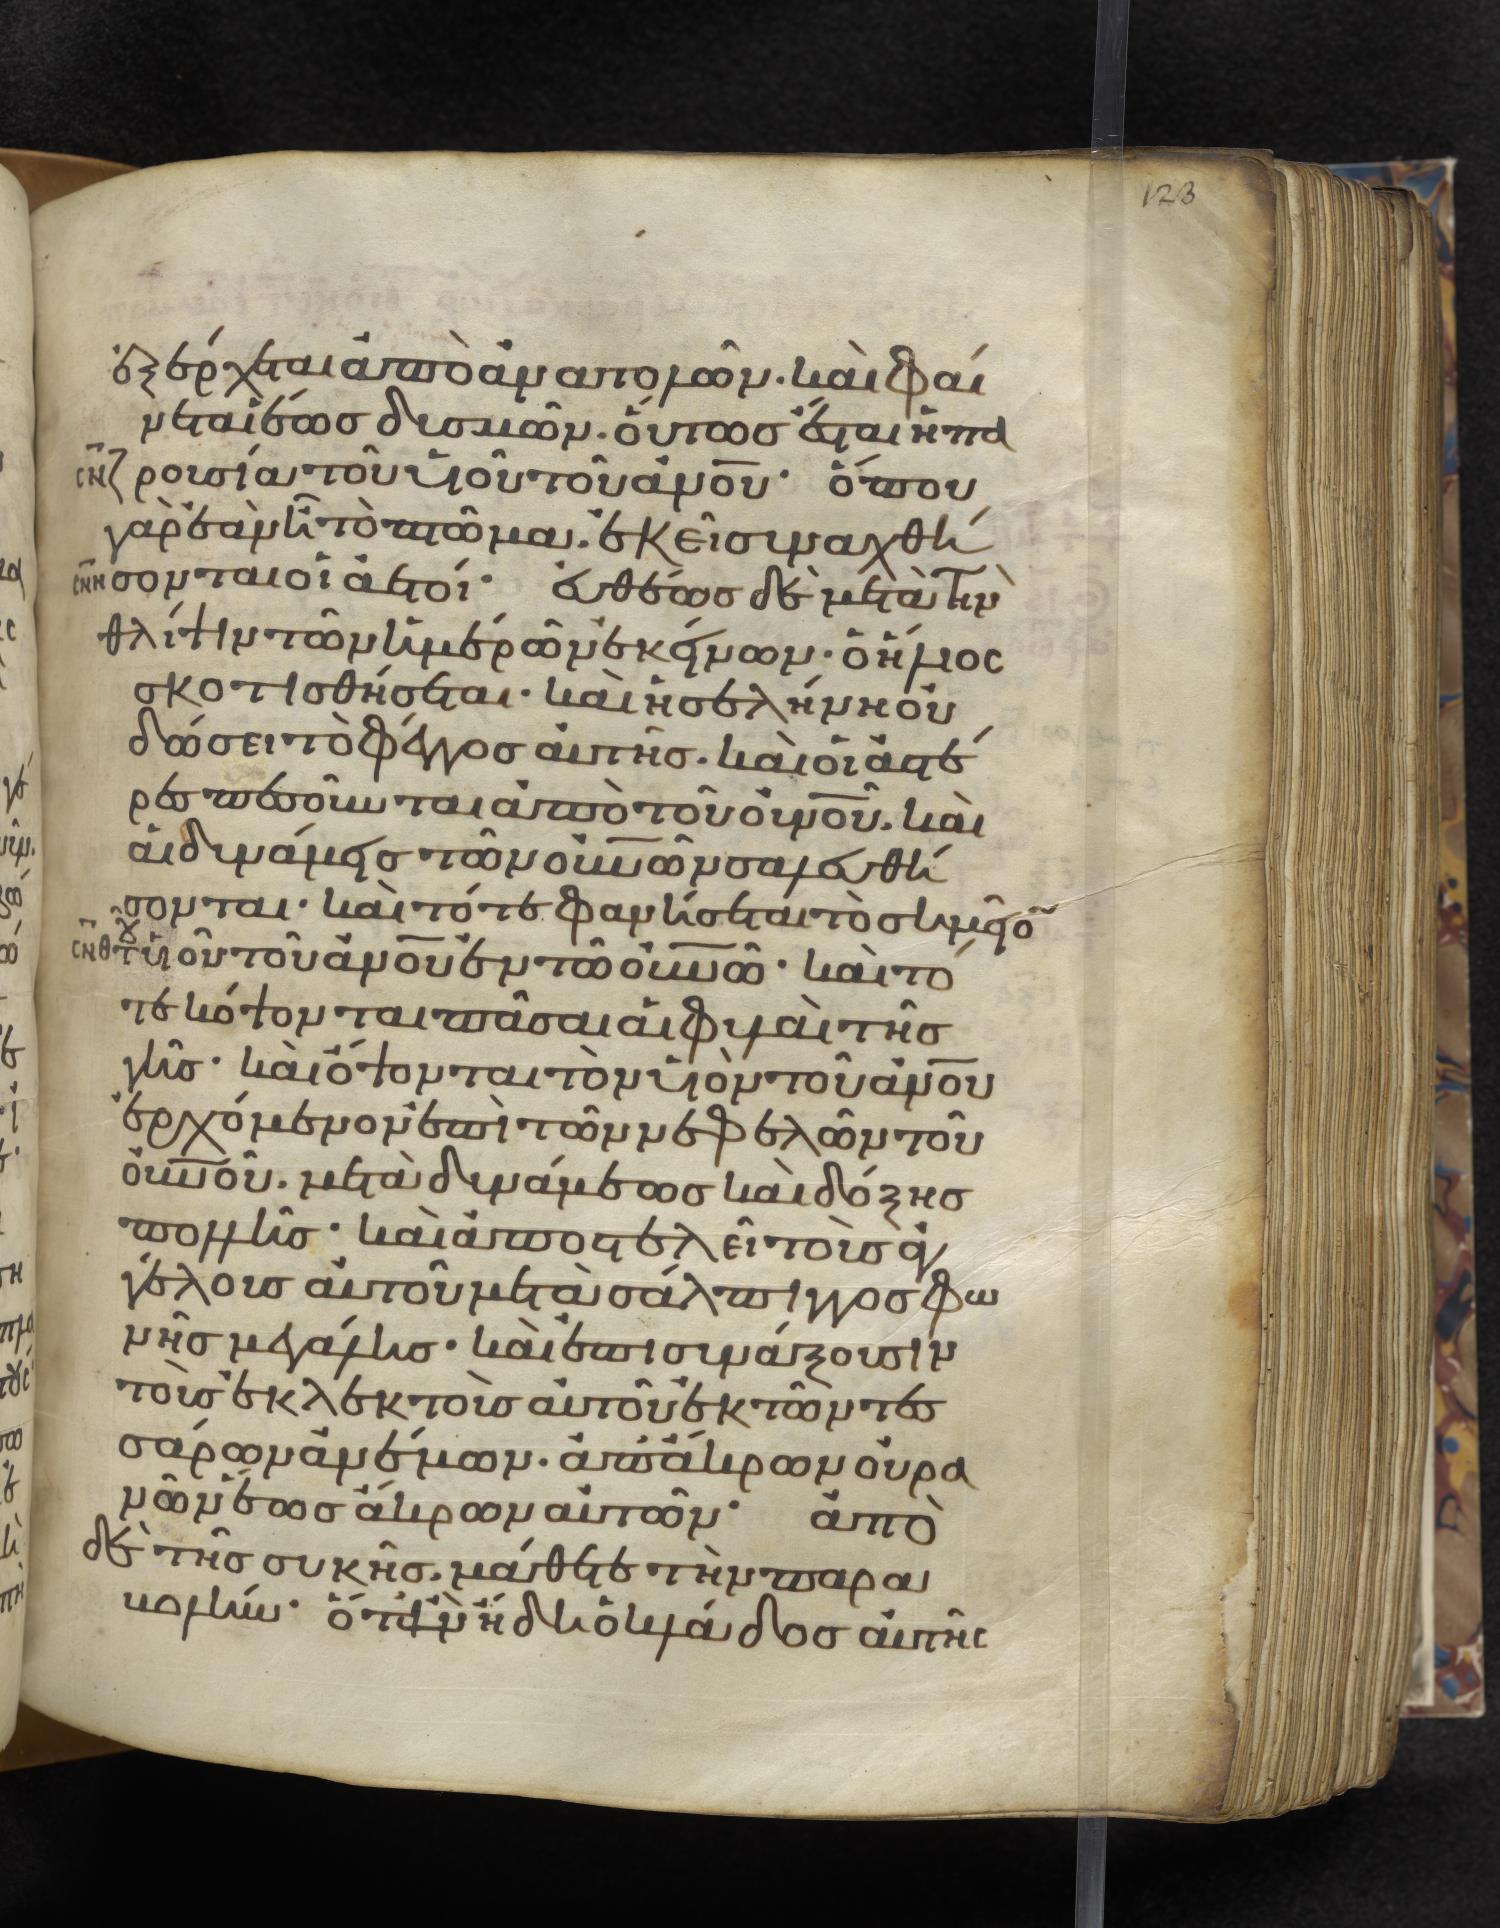 123
ἐξέρχεται ἀπὸ ἀνατολῶν· καὶ φαί
νεται ἕως δυσμῶν· οὕτως ἔσται ἡ πα
σνζ ρουσία τοῦ υἱοῦ τοῦ ἀνου· ὅπου
γὰρ ἐὰν ἦ τὸ πτῶμα· ἐκεῖ συναχθή
σνη σονται οἱ ἀετοί· εὐθέως δὲ μετὰ τὴν
θλίψιν τῶν ἡμερῶν ἐκείνων· ὁ ἥλιος
σκοτισθήσεται· καὶ ἡ σελήνη οὐ
δώσει τὸ φέγγος αὐτῆς· καὶ οἱ ἀστέ
ρες πεσοῦνται ἀπὸ τοῦ οὐνοῦ· καὶ
αἱ δυνάμεις τῶν οὐνῶν σαλευθή
σονται· καὶ τότε φανήσεται τὸ σημεῖο
σνθ τοῦ υἱοῦ τοῦ ἀνου ἐν τῶ οὐνῶ· καὶ τό
τε κόψονται πᾶσαι αἱ φυλαὶ τῆς
γῆς· καὶ ὄψονται τὸν υἱὸν τοῦ ἀνου
ἐρχόμενον ἐπὶ τῶν νεφελῶν τοῦ
οὐνοῦ· μετὰ δυνάμεως καὶ δόξης
πολλῆς· καὶ ἀποστελεῖ τοὺς ἀγ
γέλους αὐτοῦ μετὰ σάλπιγγος φω
νῆς μεγάλης· καὶ ἐπισυνάξουσιν
τοὺς ἐκλεκτοὺς αὐτοῦ ἐκ τῶν τεσ
σάρων ἀνέμων· ἀπ' ἄκρων οὐρα
νῶν ἕως ἄκρων αὐτῶν· ἀπὸ
δὲ τῆς συκῆς· μάθετε τὴν παρα
βολήν· ὅταν ἤδη ὁ κλάδος αὐτῆς